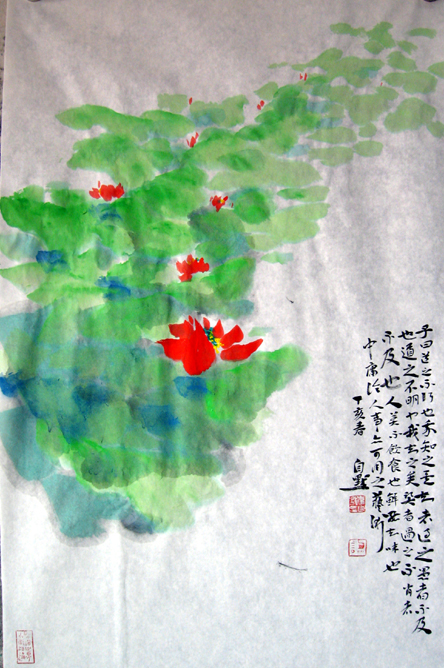 子曰道之不行也我知之矣知者过之愚者不及
也道之不明也我知之矣贤者过之不肖者
不及也人莫不饮食也鲜能知味也
中庸人事可用之藝術
丁亥春 自默